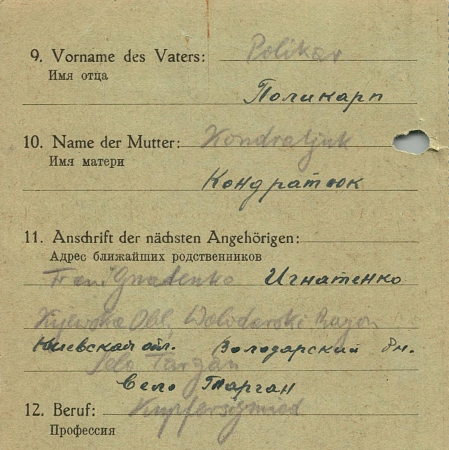 9. Vorname des Vaters: Polikar
Имя отца
Поликарп
10. Name der Mutter: Kondratjuk
Имя матери
Кондратюк
11. Anschrift der nächsten Angehörigen:
Адрес ближайших родственников
Ignatenko Игнатенко
Kijewska Obl, Wolodarski Rayon
Киевская обл. Володарский рн.
Selo Targan
Село Тарган
12. Beruf: Kupferschmied
Профессия